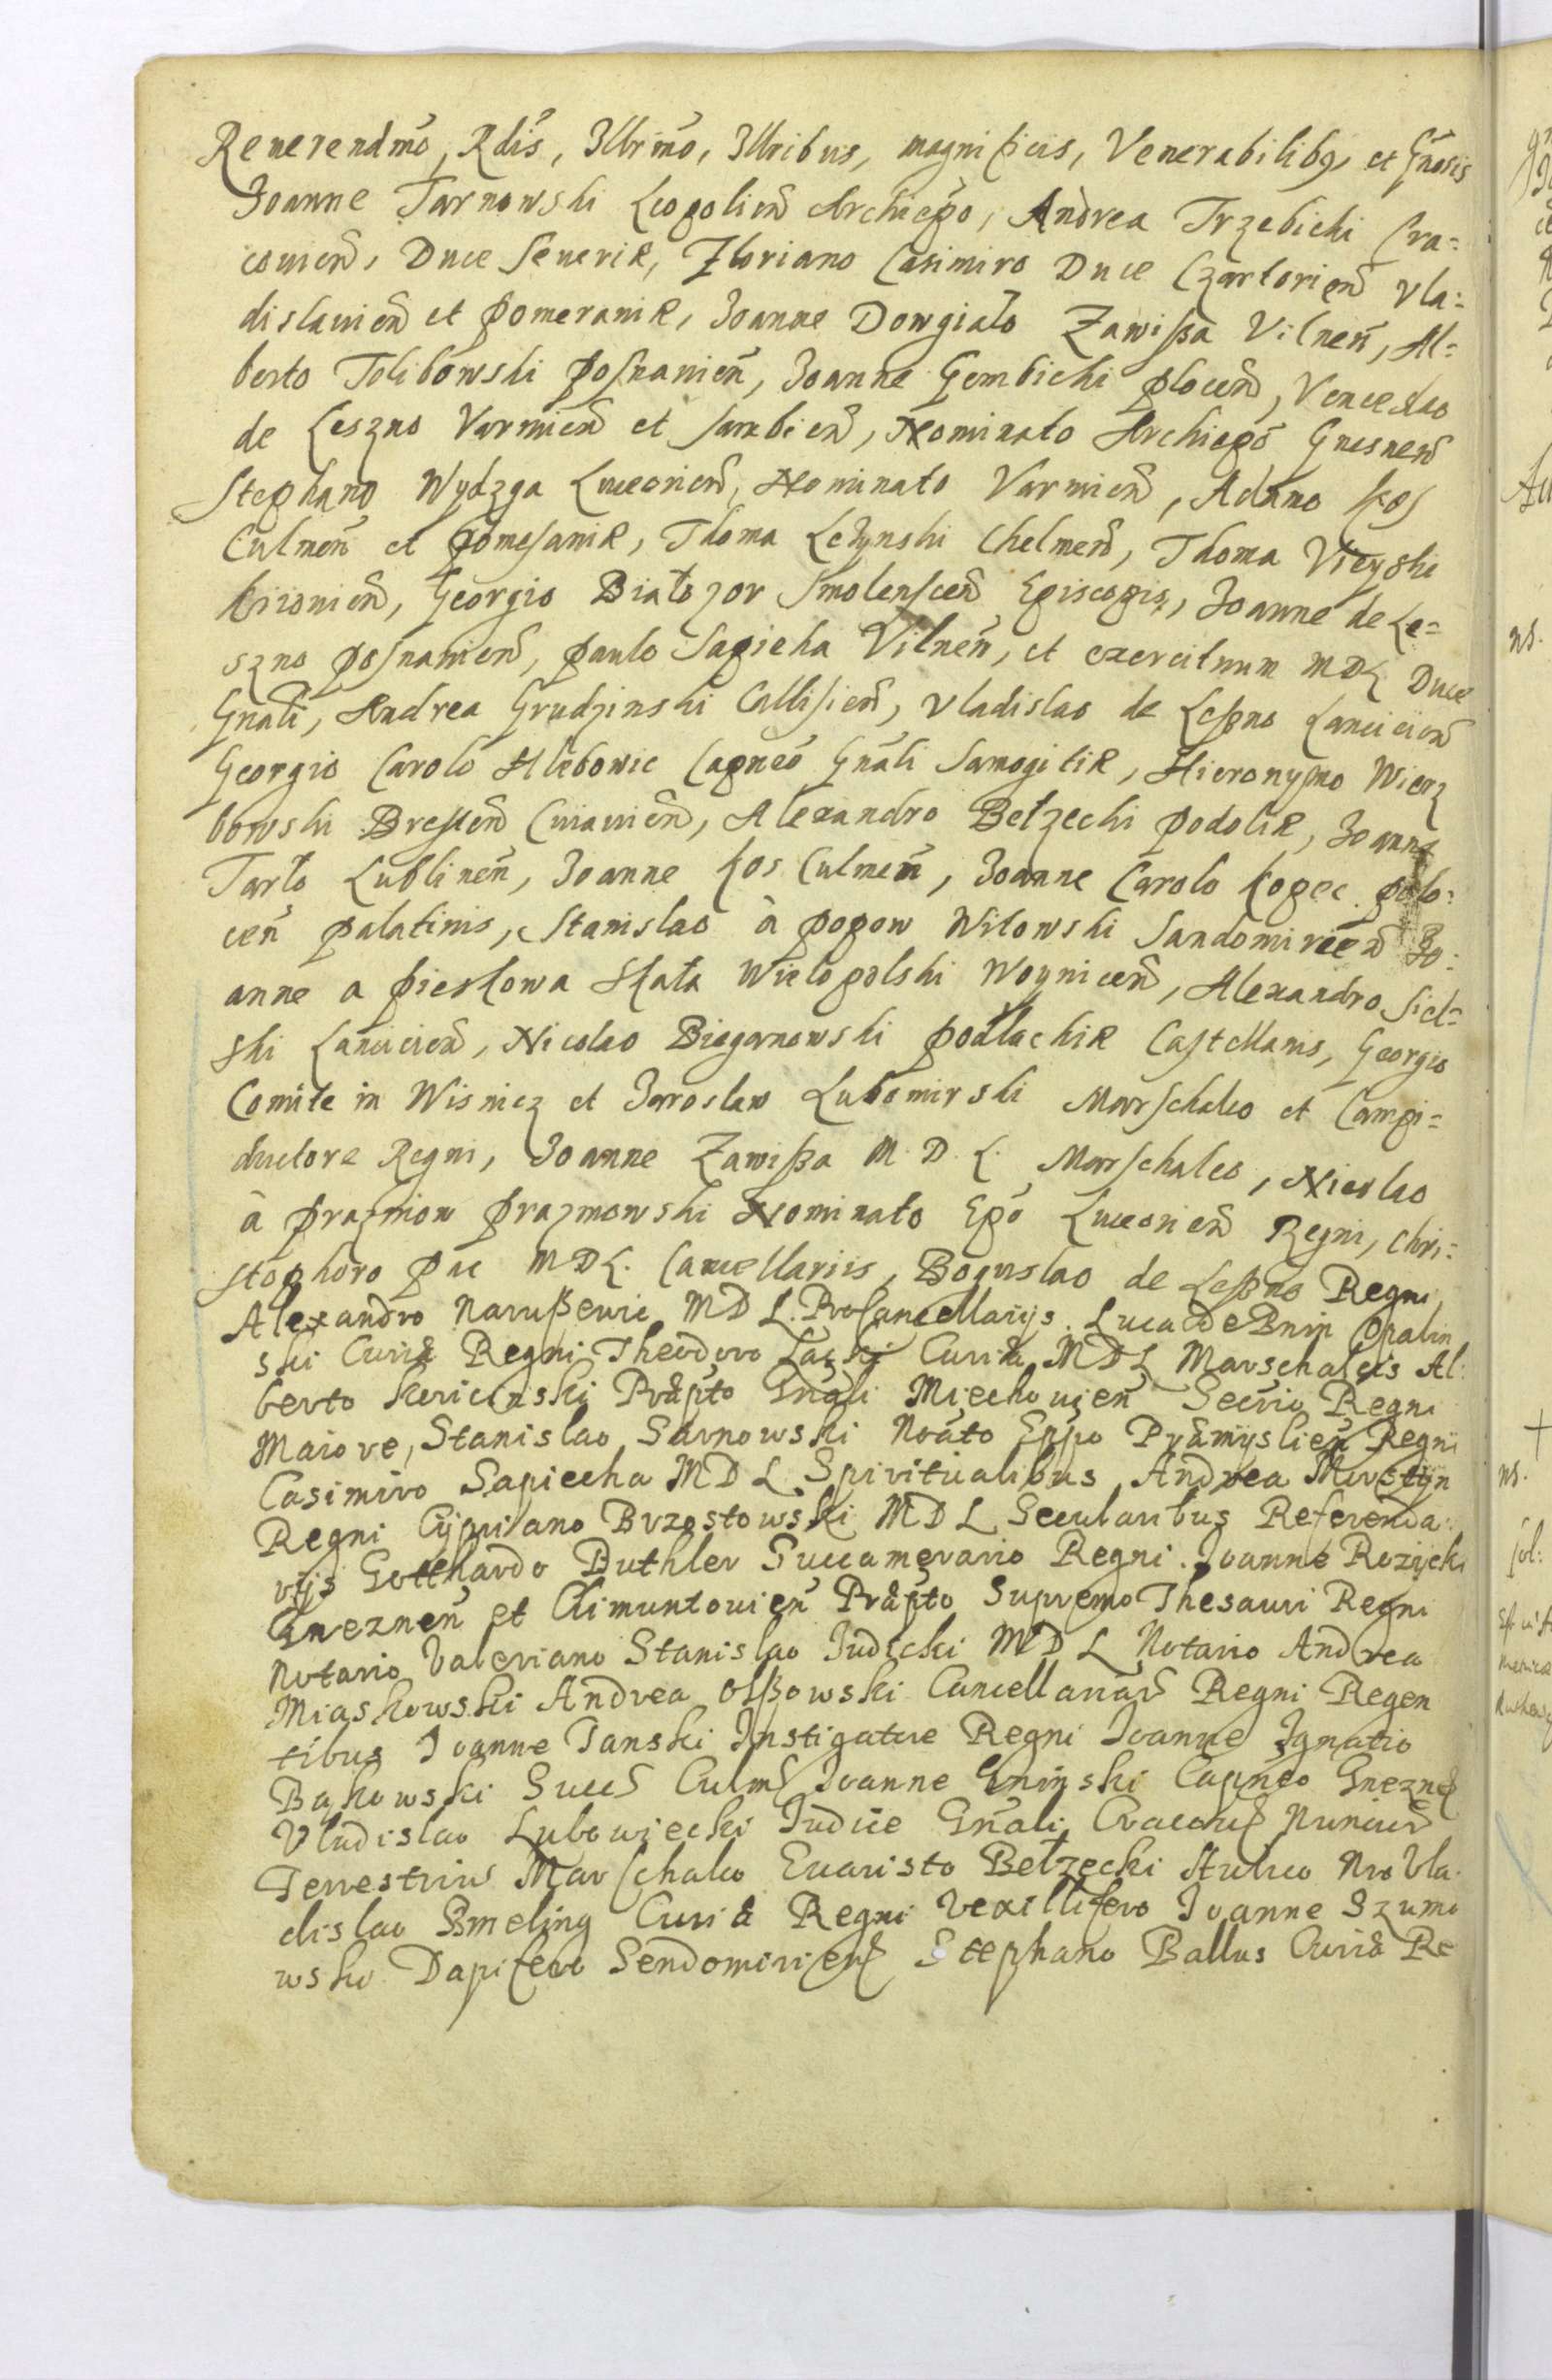 Reuerendmo, Rdis, Illrimo, Illribus, magnificis, Venerabilibq, et Gnosis
Joanne Tarnowski Leopolien Archiepo, Andrea Trzebicki Cra=
couien, Duce Seueriæ, Floriano Casimiro Duce Czartorien Vla=
dislauien et Pomeraniæ, Joanne Dowgiało Zawißa Vilnen, Al=
berto Tolibowski Posnanien, Joanne Gembicki Plocen, Venceslao
de Leszno Varmien et Sambien, Nominato Archiepo Gnesnen
Stephano Wydzga Luceorien, Nominato Varmien, Adamo Kos
Culmen et Pomesaniæ, Thoma Leżynski Chelmen, Thoma Vieyski
Kiiouien, Georgio Białozor Smolenscen Episcopis, Joanne de Le=
szno Posnanien, Paulo Sapieha Vilnen, et exercituum MDL Duce
Gnali, Andrea Grudzinski Callisien, Vladislao de Leßno Lancicien
Georgio Carolo Hlebowic Capneo Gnali Samogitiæ, Hieronymo Wierz
bowski Bresten Cuiauien, Alexandro Bełzecki Podoliæ, Joanne
Tarło Lublinen, Joanne Kos Culmen, Joanne Carolo Kopec Polo=
cen Palatinis, Stanislao à Popow Witowski Sandomirien Jo=
anne a Pieskowa Skała Wielopolski Woynicen, Alexandro Siel=
ski Lancicien, Nicolao Bieganowski Podlachiæ Castellanis, Georgio
Comite in Wisnicz et Jaroslaw Lubomirski Marschalco et Campi=
ductore Regni, Joanne Zawißa M. D. L. Marschalco, Nicolao
à Prazmow Prazmowski Nominato Epo Luceorien Regni, Chri=
stophoro Pac MDL. Cancellariis, Boguslao de Leßno Regni,
Alexandro Narußewic MDL. ProCancellarijs. Luca de Bnin Opalin
ski Curiæ Regni Theodoro Lacki Curiæ MDL Marschalcis Al:
berto Kericinski Præpto Gnali Miechouien Secrio Regni
Maiore, Stanislao Sarnowski Noato Eppo Præmyslien Regni
Casimiro Sapiecha MDL Spiritualibus Andrea Morstijn
Regni Cijpriano Brzostowski MDL Secularibus Referenda:
rijs Gotthardo Buthler Succamerario Regni. Joanne Rozijcki
Gneznen et Climuntouien Præpto Supremo Thesauri Regni
Notario Valeriano Stanislao Judicki MDL Notario Andrea
Miaskowski Andrea Olßowski Cancellariar Regni Regen
tibus Joanne Tanski Instigatore Regni Joanne Ignatio
Bąkowski Succ Culm Joanne Gninski Capneo Gnezn
Vladislao Lubowiecki Judice Gnali Cracou Nuncior
Terrestriu Marschalco Euaristo Bełzecki Aulico Nro Vla:
dislao Smeling Curiæ Regni Vexillifero Joanne Szumo
wski Dapifero Sendomirien Stephano Ballus Curiæ Re